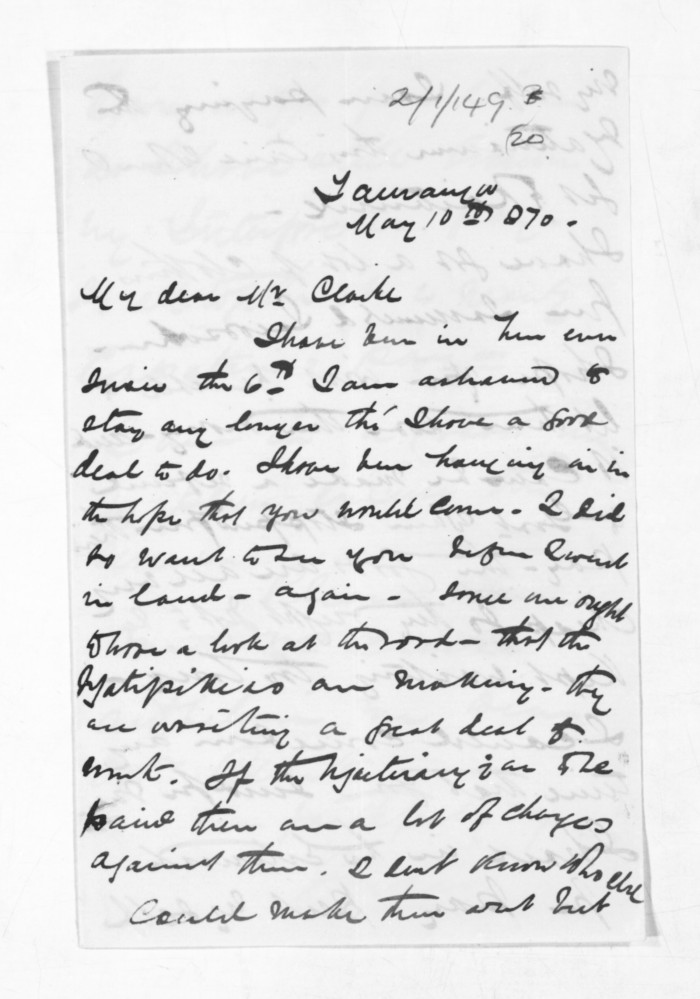 2/1/149 B
20
Tauranga
May 10th 1870.
My dear Mr Clarke
I have been in here ever
since the 6th I am ashamed to
stay any longer tho' I have a good
deal to do. I have been hanging on in
the hope that you would come - I did
so want to see you before I went
in land - again - Some one ought
to have a look at the road - that the
Ngatipikiao are making - they
are wasting a great deal of
work. If the Ngatirangi are to be
paid there are a lot of charges
against them. I dont know who else
could make them out but